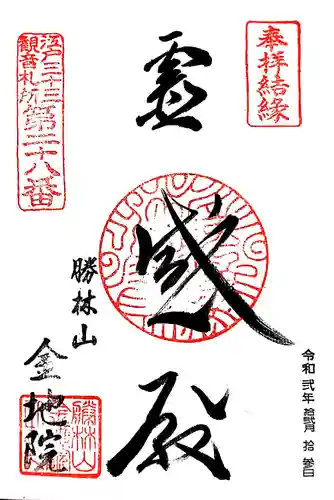 奉拝結縁
令和弐年 拾弐月 拾参日
霊感殿
江戸三十三
観音札所
第二十八番
勝林山
金地院
勝林山